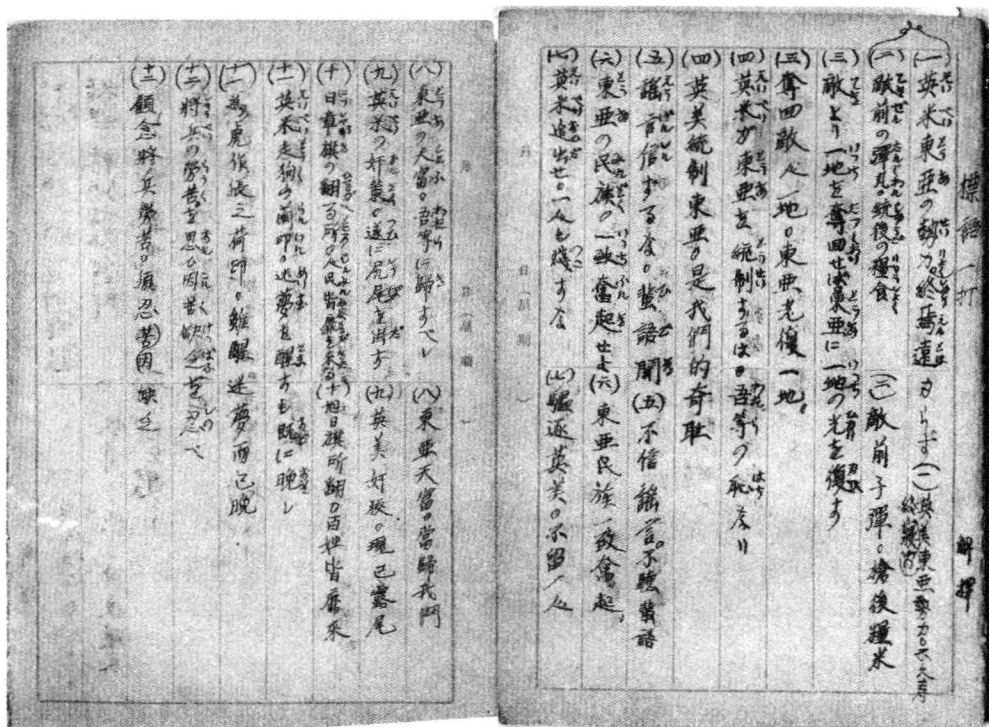 標語一打 解釋
(一)英米東亜の勢力終焉遠からず (一)英美東亜勢力不久
(二)敵前の彈丸銃後の糧食 (二)敵前子彈。槍後糧米
(三)敵より一地を奪回せば東亜に一地の光を復す
(三)奪回敵人一地。東亜光復一地。
(四)英米が東亜を統制するは吾等の恥なり
(四)英美統制東亜。是我們的奇耻
(五)謡言信ずるな。蜚語聞 (五)不信謡言。不聴蜚語
(六)東亜の民族。一致奮起せよ (六)東亜民族一致奮起。
(七)英米追出せ。一人も残すな (七)驅逐英美。不留一人
月 日(星期 )
(八)東亜の天富。吾等に歸すべし (八)東亜天富。當歸我們
(九)英米の奸策。遂に尻尾を出す (九)英美奸狡。現已露尾
(十)日章旗の翻る所。人民皆 (十)旭日旗所翻。百姓皆來
(十一)英米走狗の蘭印。迷夢を醒すも既に晩し
(十一)為虎作倀之荷印。雖醒迷夢而已晩
(十二)將兵の勞苦を思ひ困苦缺乏を忍べ
(十二)顧念將兵勞苦。須忍苦困缺乏
月 日(星期 )